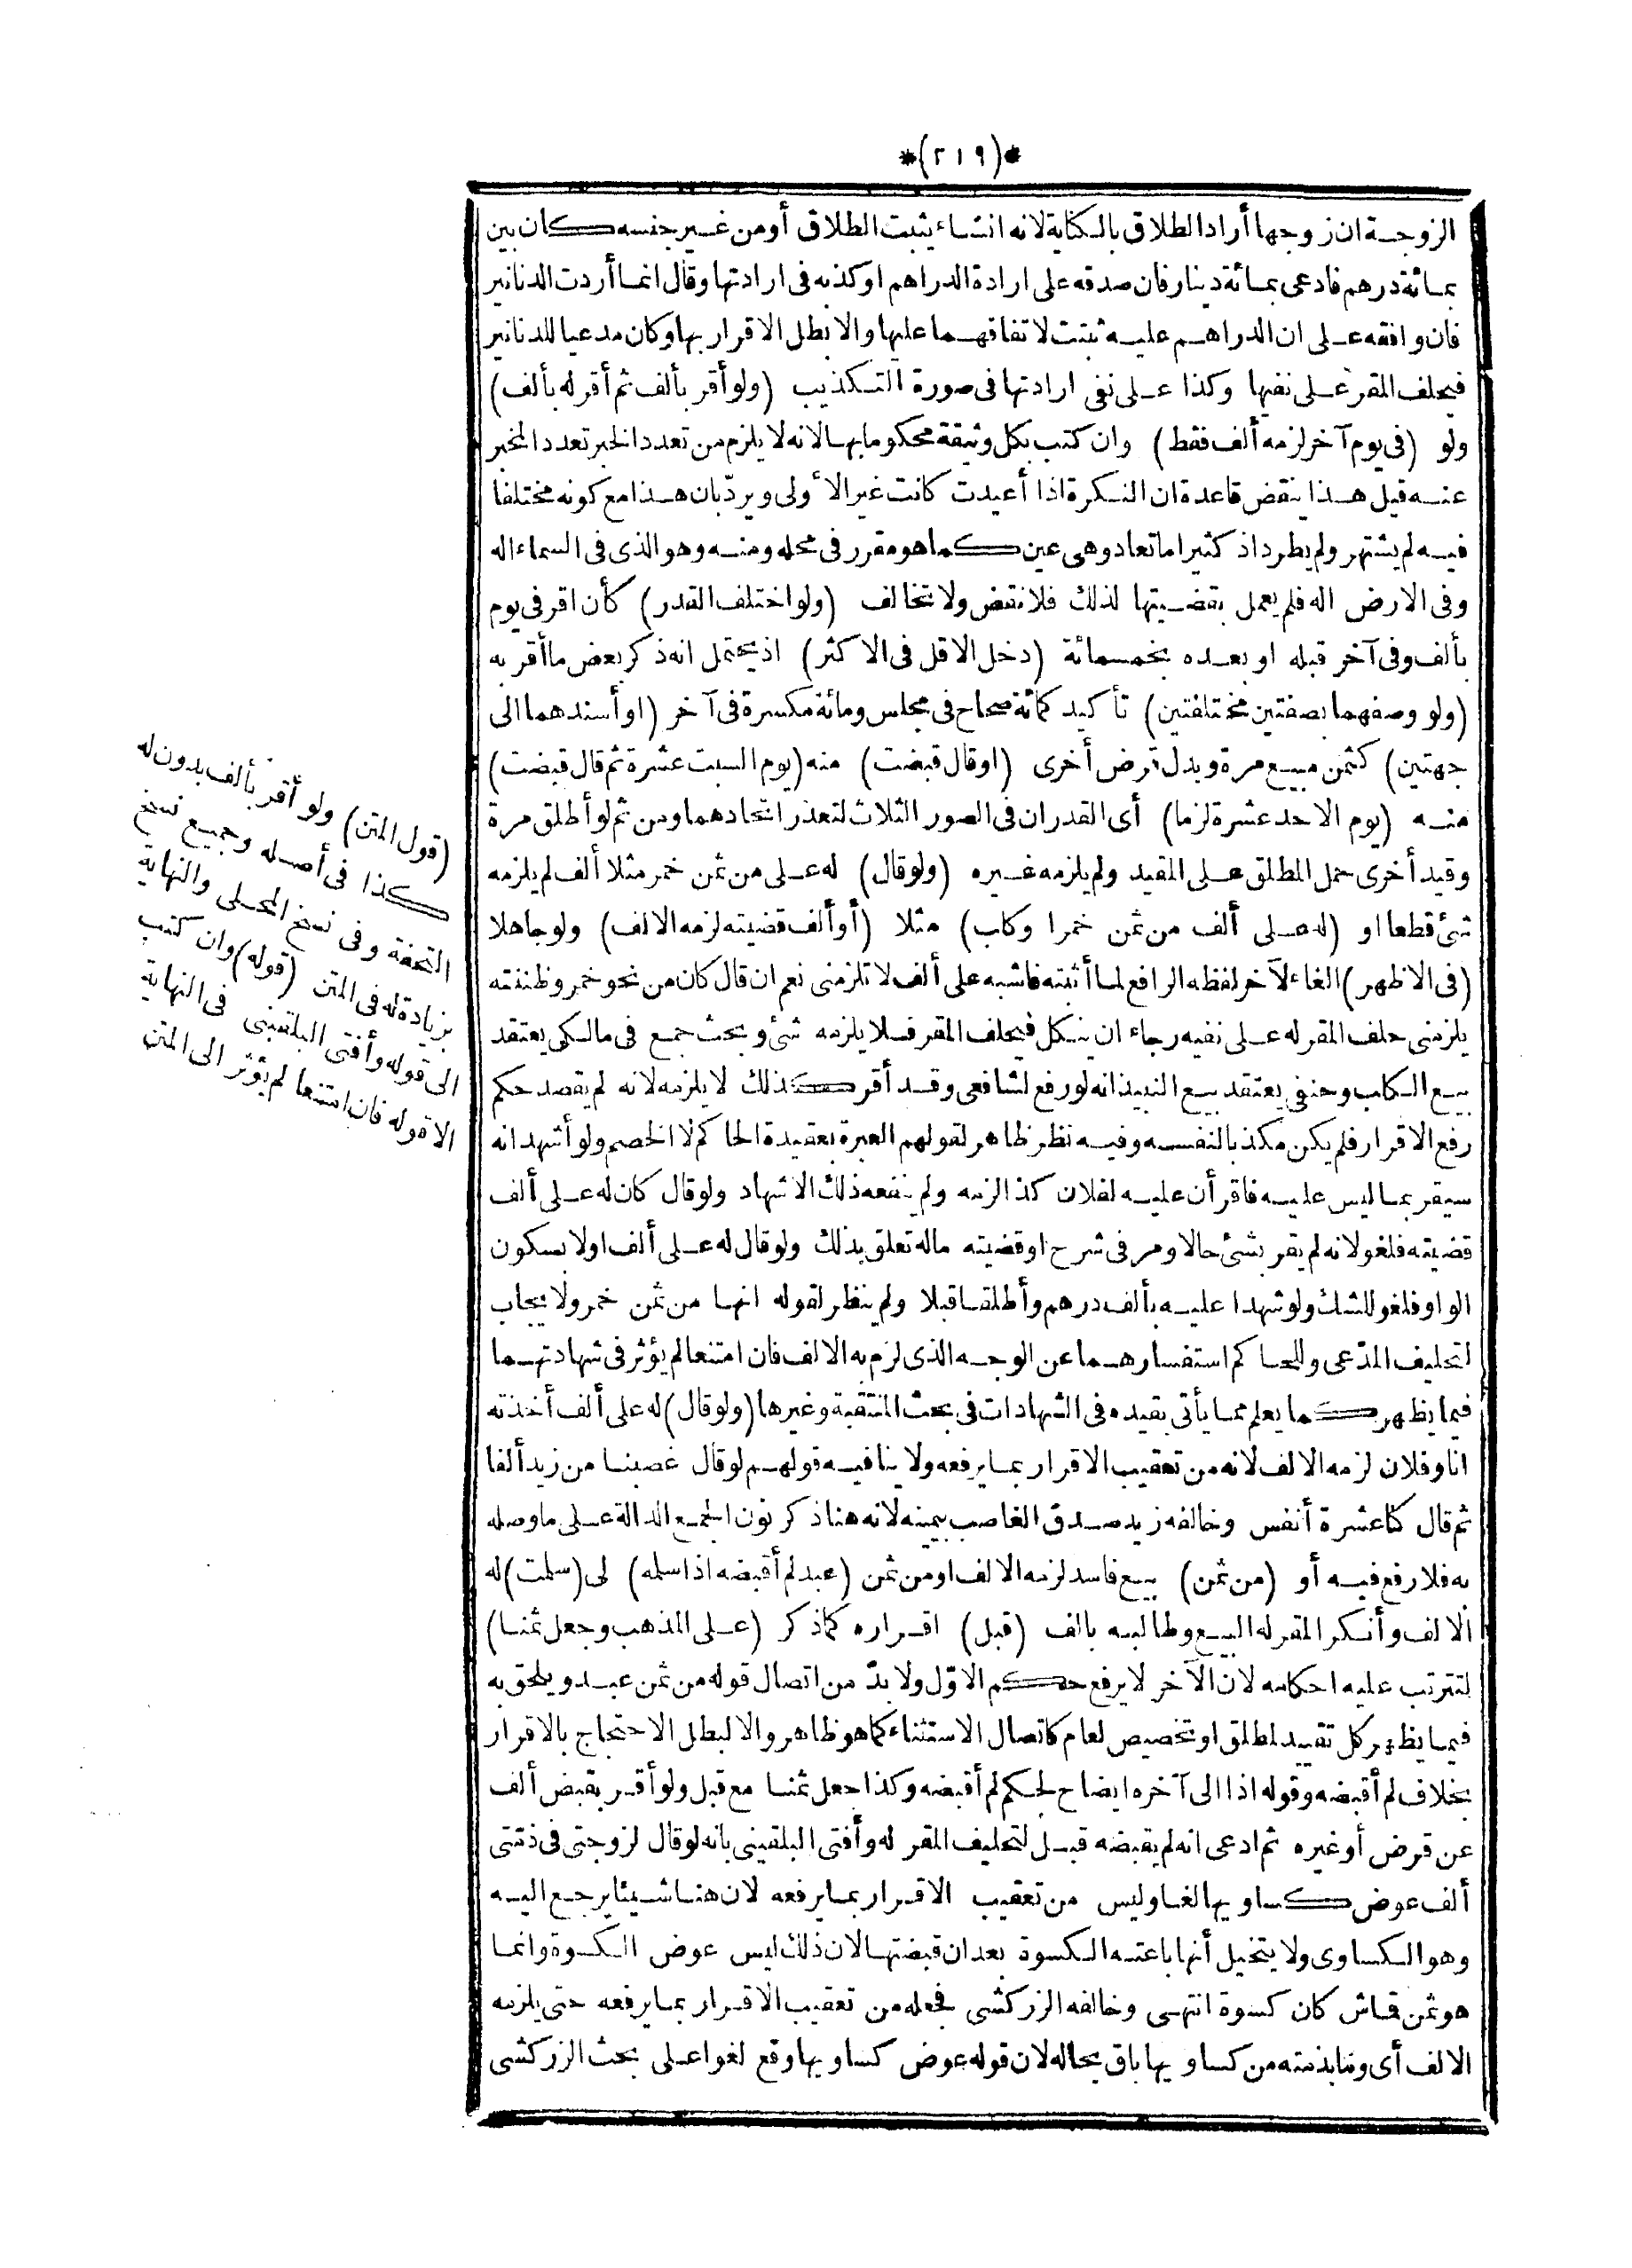 *(٢١٩)*
الزوجة ان زوجها أراد الطلاق بالكناية لانه انشاء يثبت الطلاق أو من غير جنسه كان بين
بمائة درهم فادعى بمائة دينار فان صدقه على ارادة الدراهم او كذبه فى ارادتها وقال انما أردت الدنانير
فان وافقه على ان الدراهم عليه ثبتت لاتفاقهما عليها والا بطل الاقرار بها وكان مدعيا للدنانير
فيحلف المقر على نفيها وكذا على نفى ارادتها فى صورة التكذيب (ولو أقر بألف ثم أقر له بألف)
ولو (فى يوم آخر لزمه ألف فقط) وان كتب بكل وثيقة محكوما بها لانه لا يلزم من تعدد الخبر تعدد المخبر
عنه قيل هذا ينقض قاعدة ان النكرة اذا أعيدت كانت غير الأولى ويردّ بان هذا مع كونه مختلفا
فيه لم يشتهر ولم يطرد اذ كثيرا ما تعاد وهى عين كما هو مقرر فى محله ومنه وهو الذى فى السماء اله
وفى الارض اله فلم يعمل بقضيتها لذلك فلا نقض ولا تخالف (ولو اختلف القدر) كأن اقر فى يوم
بألف وفى آخر قبله او بعده بخمسمائة (دخل الاقل فى الاكثر) اذ يحتمل انه ذكر بعض ما أقر به
(ولو وصفهما بصفتين مختلفتين) تأكيد كمائة صحاح فى مجلس ومائة مكسرة فى آخر (او أسندهما الى
جهتين) كثمن مبيع مرة وبدل قرض أخرى (او قال قبضت) منه (يوم السبت عشرة ثم قال قبضت)
منه (يوم الاحد عشرة لزما) أى القدران فى الصور الثلاث لتعذر اتحادهما ومن ثم لو أطلق مرة
وقيد أخرى حمل المطلق على المقيد ولم يلزمه غيره (ولو قال) له على من ثمن خمر مثلا ألف لم يلزمه
شئ قطعا او (له على ألف من ثمن خمر او كلب) مثلا (أو ألف قضيته لزمه الالف) ولو جاهلا
(فى الاظهر) الغاء لآخر لفظه الرافع لما أثبته فاشبه على ألف لا تلزمنى نعم ان قال كان من نحو خمر وظننته
يلزمنى حلف المقر له على نفيه رجاء ان ينكل فيحلف المقر فلا يلزمه شئ وبحث جمع فى مالكى يعتقد
بيع الكلب وحنفى يعتقد بيع النبيذ انه لو رفع لشافعى وقد أقر كذلك لا يلزمه لانه لم يقصد حكم
رفع الاقرار فلم يكن مكذبا لنفسه وفيه نظر ظاهر لقولهم العبرة بعقيدة الحاكم لا الخصم ولو أشهد انه
سيقر بما ليس عليه فاقر أن عليه لفلان كذا لزمه ولم ينفعه ذلك الاشهاد ولو قال كان له على ألف
قضيته فلغو لانه لم يقر بشئ حالا ومر فى شرح او قضيته ما له تعلق بذلك ولو قال له على ألف او لا بسكون
الواو فلغو للشك ولو شهدا عليه بألف درهم وأطلقا قبلا ولم ينظر لقوله انها من ثمن خمر ولا يجاب
لتحليف المدّعى وللحاكم استفسارهما عن الوجه الذى لزم به الالف فان امتنعا لم يؤثر فى شهادتهما
فيما يظهر كما يعلم مما يأتى بقيده فى الشهادات فى بحث المنتقبة وغيرها (ولو قال) له على ألف أخذته
انا وفلان لزمه الالف لانه من تعقيب الاقرار بما يرفعه ولا ينافيه قولهم لو قال غصبنا من زيد ألفا
ثم قال كنا عشرة أنفس وخالفه زيد صدق الغاصب بيمينه لانه هنا ذكر نون الجمع الدالة على ما وصله
به فلا رفع فيه أو (من ثمن) بيع فاسد لزمه الالف او من ثمن (عبد لم أقبضه اذا سلمه) لى (سلمت) له
الالف وأنكر المقر له البيع وطالبه بالف (قبل) اقراره كما ذكر (على المذهب وجعل ثمنا)
لتترتب عليه احكامه لان الآخر لا يرفع حكم الاوّل ولا بدّ من اتصال قوله من ثمن عبد ويلحق به
فيما يظهر كل تقييد لمطلق او تخصيص لعام كاتصال الاستثناء كما هو ظاهر والا لبطل الاحتجاج بالاقرار
بخلاف لم أقبضه وقوله اذا الى آخره ايضاح لحكم لم أقبضه وكذا جعل ثمنا مع قبل ولو أقر بقبض ألف
عن قرض أو غيره ثم ادعى انه لم يقبضه قبل لتحليف المقر له وأفتى البلقينى بانه لو قال لزوجتى فى ذمّتى
ألف عوض كساويها لغا وليس من تعقيب الاقرار بما يرفعه لان هنا شيئا يرجع اليه
وهو الكساوى ولا يتخيل أنها باعته الكسوة بعد ان قبضتها لان ذلك ليس عوض الكسوة وانما
هو ثمن قماش كان كسوة انتهى وخالفه الزركشى فجعله من تعقيب الاقرار بما يرفعه حتى يلزمه
الالف أى وما بذمته من كساويها باق بحاله لان قوله عوض كساويها وقع لغوا على بحث الزركشى
(قول المتن) ولو أقر بألف بدون له
كذا فى أصله وجميع نسخ
التحفة وفى نسخ المحلى والنهاية
بزيادة له فى المتن (قوله) وان كتب
الى قوله وأفتى البلقينى فى النهاية
الا قوله فان امتنعا لم يؤثر الى المتن